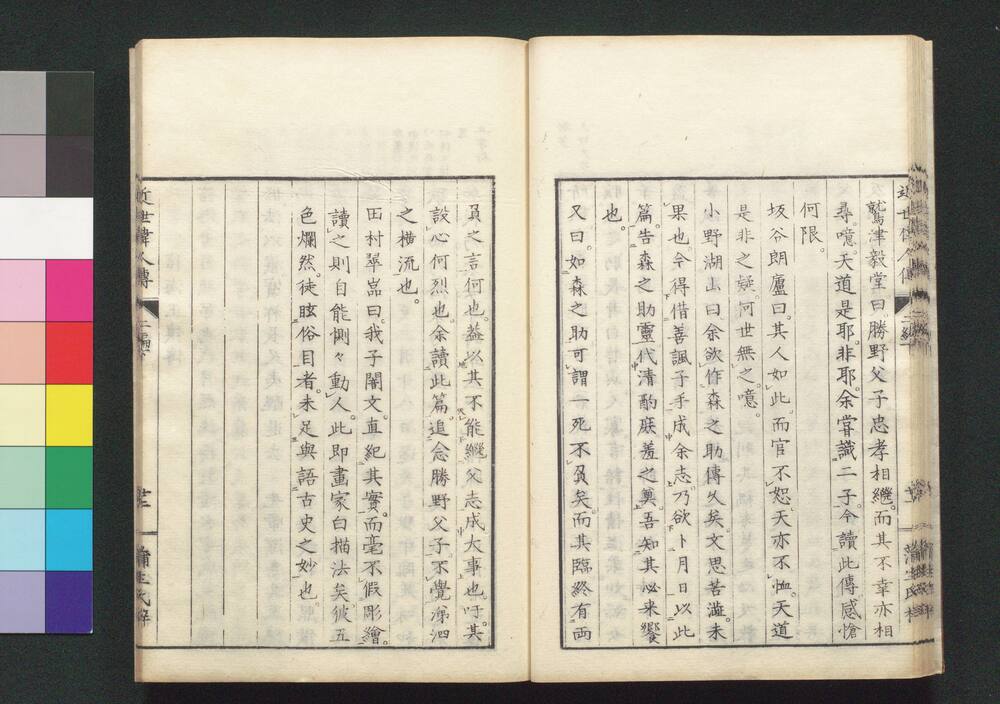 鷲津毅堂曰。勝野父子忠孝相繼。而其不幸亦相
尋。噫。天道是耶。非耶。余嘗識二子。今讀此傳。感愴
何限。
坂谷朗廬曰。其人如此。而官不恕。天亦不恤。天道
是非之疑。何世無之。噫。
小野湖山曰。余欲作森之助傳久矣。文思苦澁。未
果也。今得借善諷子手成余志。乃欲卜月日。以此
篇。告森之助靈。代清酌庶羞之奠。吾知其必來饗
也。
又曰。如森之助。可謂一死不負矣。而其臨終有兩
負之言何也。蓋以其不能繼父志成大事也。吁。其
設心何烈也。余讀此篇。追念勝野父子。不覺涕泗
之橫流也。
田村翠嵒曰。我子闇文。直紀其實。而毫不假彫繪。
讀之則自能惻々動人。此即畫家白描法矣。彼五
色爛然。徒眩俗目者。未足與語古史之妙也。
近世偉人傳
二編下
蒲生氏梓